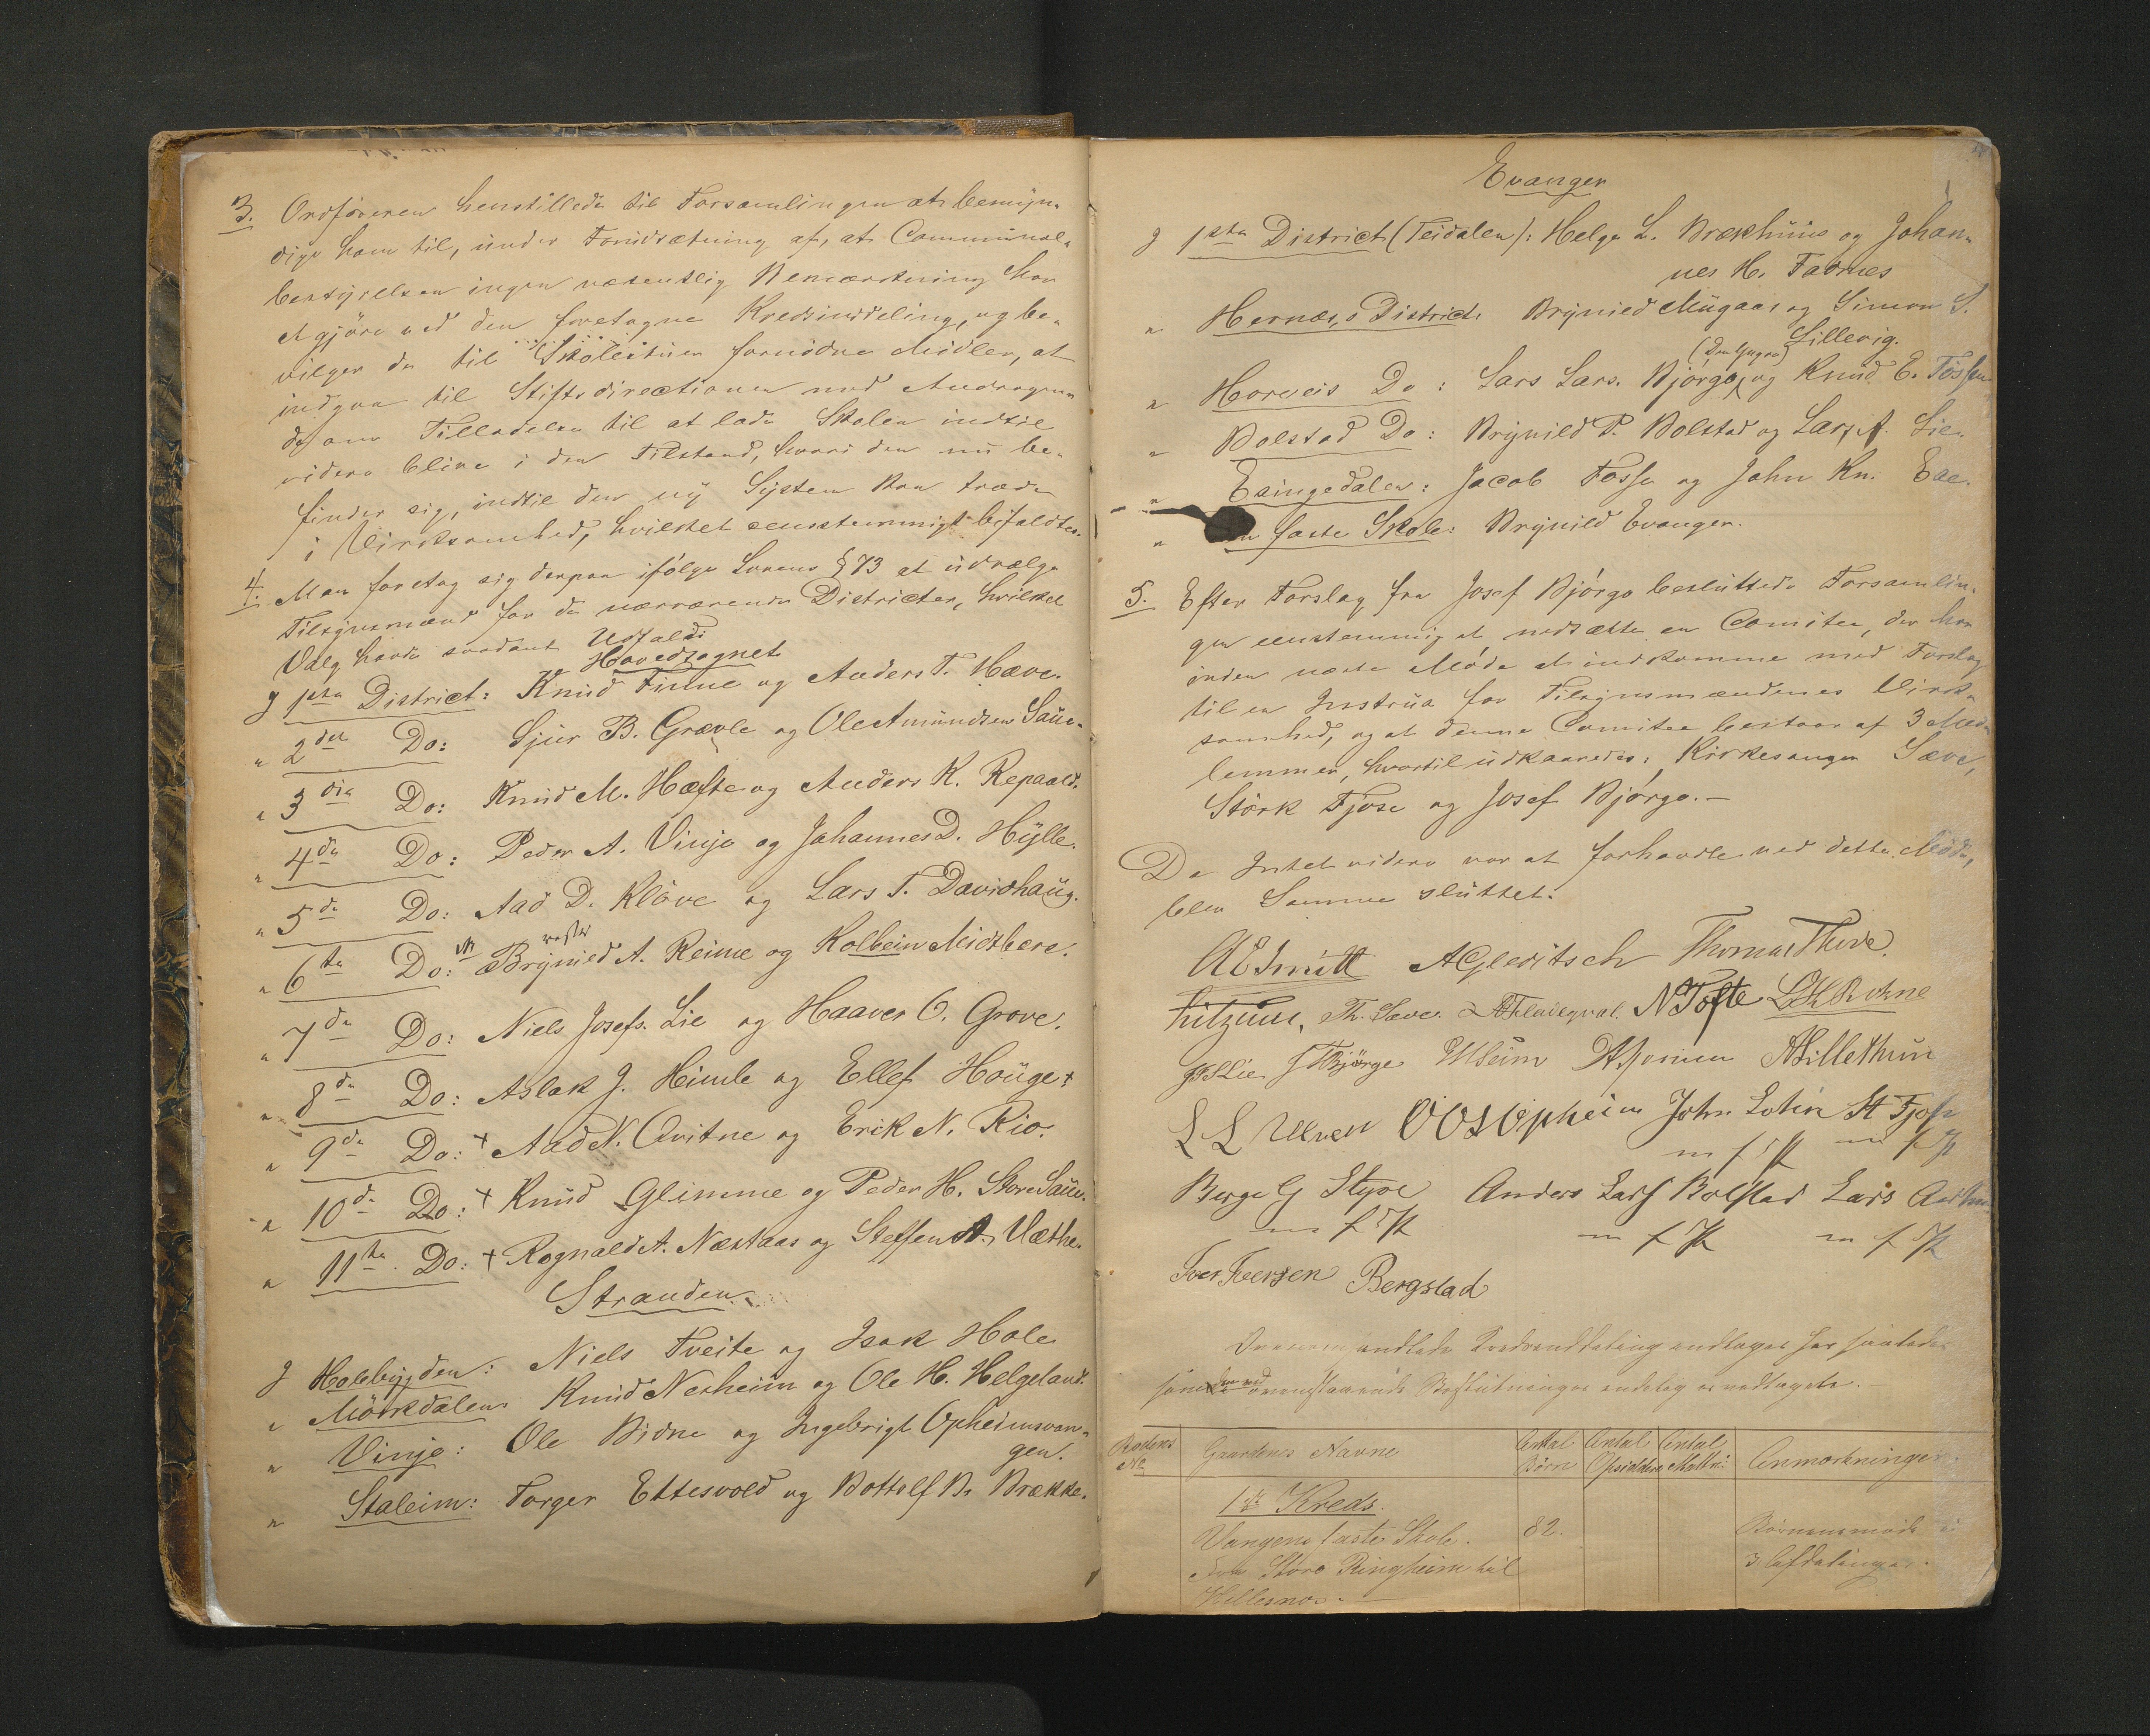 3. Ordføreren henstillede til Forsamlingen at bemyn-
dige ham til, under Forudsætning af, at Communal-
bestyrelsen ingen væsentlig Bemærkning har
at gjøre ved den foretagne Kredsinddeling, og be-
vilger de til Skolestuer fornødne Midler, at
indgaa til Stiftsdirectionen med Andragen-
de om Tilladelse til at lade Skolen indtil
videre blive i den Tilstand, hvori den nu be-
finder sig, indtil det ny System kan træde
i Virksomhed, hvilket eenstemmigt bifaldtes.
4. Man foretog sig derpaa ifølge Lovens § 73 at udvælge
Tilsynsmænd for de nærværende Districter, hvilket
Valg havde saadant Udfald:
Hovedsognet
I 1ste District: Knud Finne og Anders T. Hæve.
" 2det Do: Sjur B. Grævle og Ole Amundsen Saue.
" 3die Do: Knud M. Hæfte og Anders K. Repaal.
" 4de Do: Peder A. Vinje og Johannes D. Hylle.
" 5te Do: Aad D. Kløve og Lars T. Davidhaug.
" 6te Do: Brynild A. Reime og Kolbein Midtbære.
" 7de Do: Niels Josefs. Lie og Haaver O. Grove.
" 8de Do: Aslak J. Himle og Ellef Houge +
" 9de Do: + Aad N. Qvitne og Erik N. Rio.
" 10de Do: + Knud Glimme og Peder H. Store Saue.
" 11te Do: + Rognald A. Næstaas og Steffen A. Væthe.
Stranden
I Holebygden: Niels Tveite og Isak Hole
" Mörkdalen: Knud Nesheim og Ole H. Helgeland.
" Vinje: Ole Bidne og Ingebrigt Opheimsvan-
gen.
" Staleim: Torger Ettesvold og Bottolf B. Brække.
Evanger
I 1ste District (Teidalen): Helge L. Brækhuus og Johan-
nes H. Fadnes
" Hernæs District: Brynild Mugaas og Simon S.
Lillevig.
(Den Yngre)
" Horveis Do: Lars Lars. Bjørgo, og Knud E. Fosse
" Bolstad Do: Brynild P. Bolstad og Lars A. Lie.
" Exingedalen: Jacob Fosse og John Kn. Eae.
" faste Skole: Brynild Evanger.
5. Efter Forslag fra Josef Bjørgo besluttede Forsamlin-
gen eenstemmig at nedsætte en Comitee, der har
inden næste Møde at indkomme med Forslag
til en Instrux for Tilsynsmændenes Virk-
somhed, og at denne Comitee bestaar af 3 Med-
lemmer, hvortil udkaaredes: Kirkesanger Sæve,
Störk Fjose og Josef Bjørgo.-
Da Intet videre var at forhandle ved dette Møde,
blev Samme sluttet.
AESmitt AGleditsch Thomas Theve.
Th. Sæve. NTofte LKRokne
JBjörge MSeim NLillethun
L L Ulven OOSOpheim John Lotin St Fjose
m f P m f P
Berge G Styve Anders Lars Bolstad Lars
m f P m f P m f P
Iver Iversen Bergstad
som den ved ovenstaaende Beslutninger endelig er vedtaget.
Rodens No Gaardenes Navne Antal Børn Antal Opsiddere Antal Anmærkninger.
1ste Kreds.
Vangens faste Skole. 82. Børnene møde i
Fra Store Ringheim til 3 Afdelinger.
Hellesnoe.